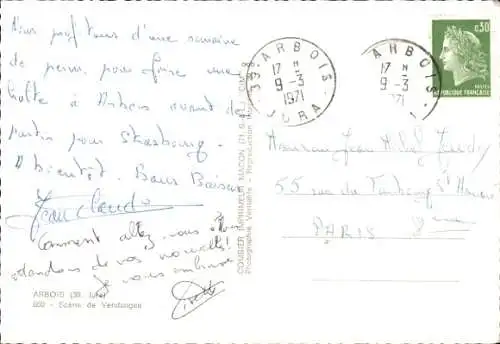 Nous profitons d'une semaine
de perm. pour faire une
halte à Arbois avant de
partir pour Strasbourg.
A bientôt. Bons Baisers
Jean Claude
Comment allez-vous
attendons de vos nouvelles!
Je vous embrasse
ARBOIS (39. Jura)
Scène de Vendanges
COMBIER IMPRIMEUR MACON
Photographie Véritable - Reproduction
39 ARBOIS
17 H
9-3
1971
JURA
ARBOIS
17 H
9-3
0,30
POSTES
REPUBLIQUE FRANCAISE
Monsieur Jean
55 rue du Faubourg St Honoré
PARIS 8ème